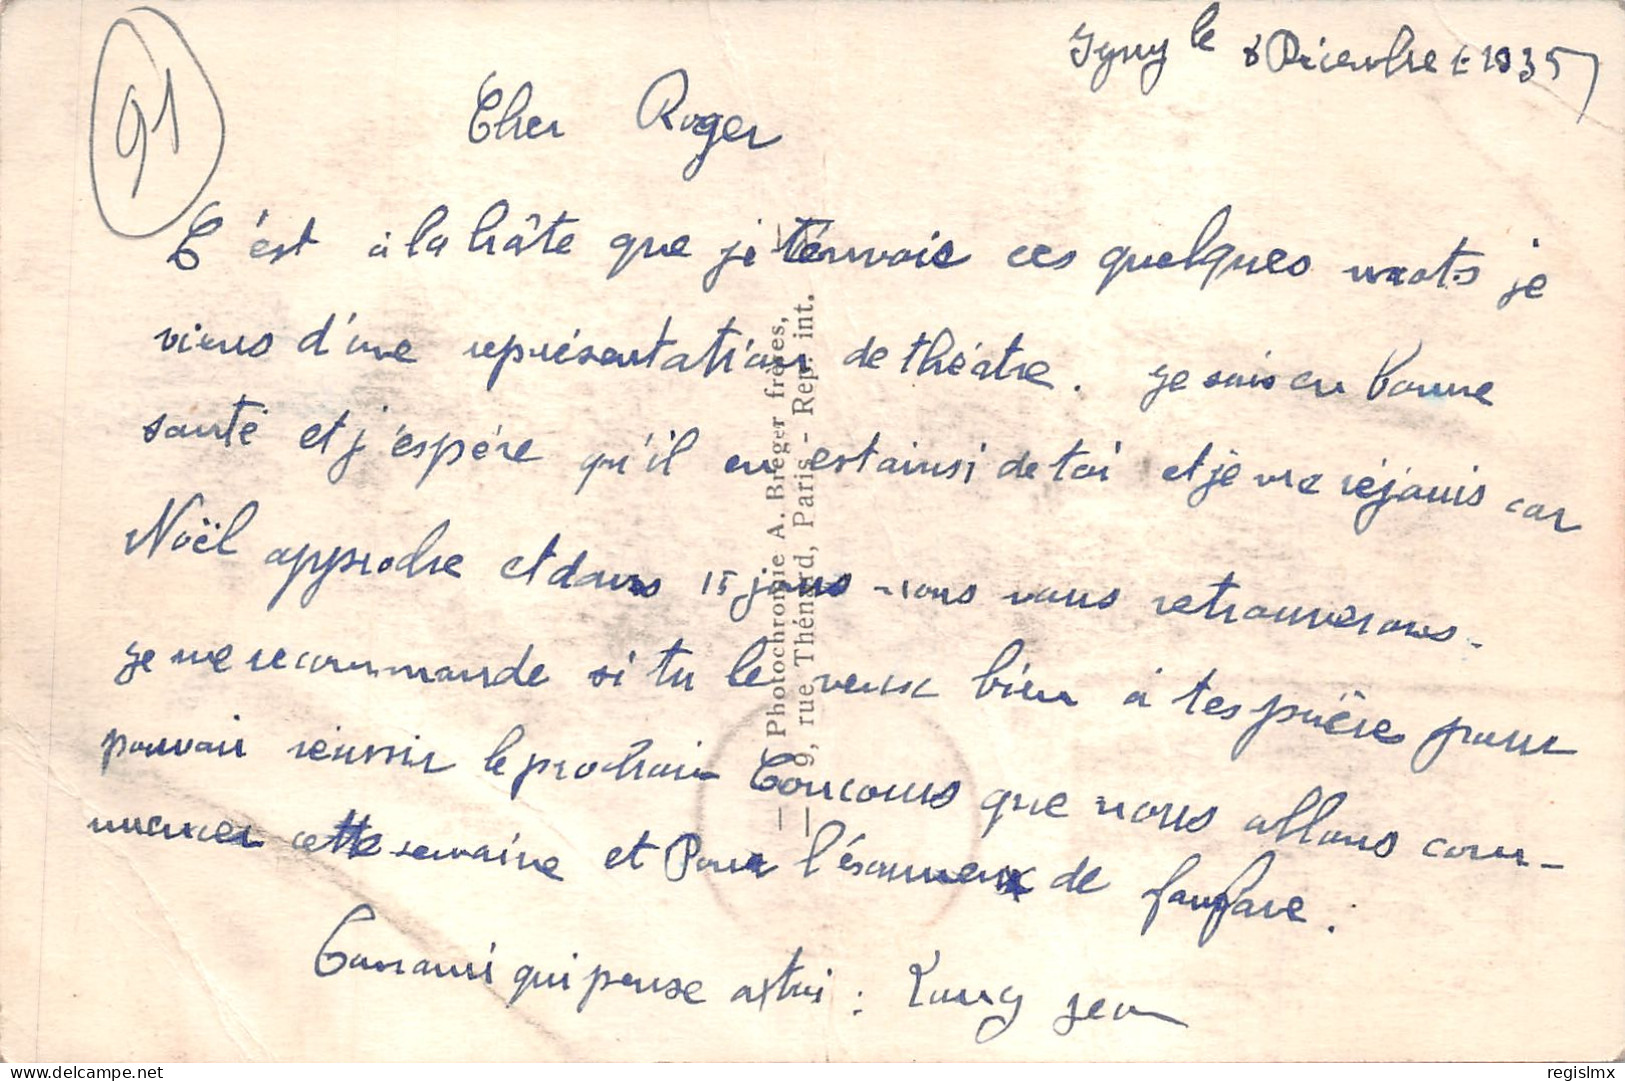 Igny le 8 Décembre 1935
91
Cher Roger
C'est à la hâte que je t'envoie ces quelques mots je
viens d'une représentation de théâtre. je suis en bonne
santé et j'espére qu'il en est ainsi de toi et je me réjouis car
Noël approche et dans 15 jours nous nous retrouverons.
je me recommande si tu le veux bien à tes prière pour
pouvoir réussir le prochain Concours que nous allons com-
mencer cette semaine et Pour l'éxamen de fanfare.
Ton ami qui pense a toi : Jean
— Photochromie A. Breger frères,
— 9, rue Thénard, Paris - Rep. int.
delcampe.net
regislmx